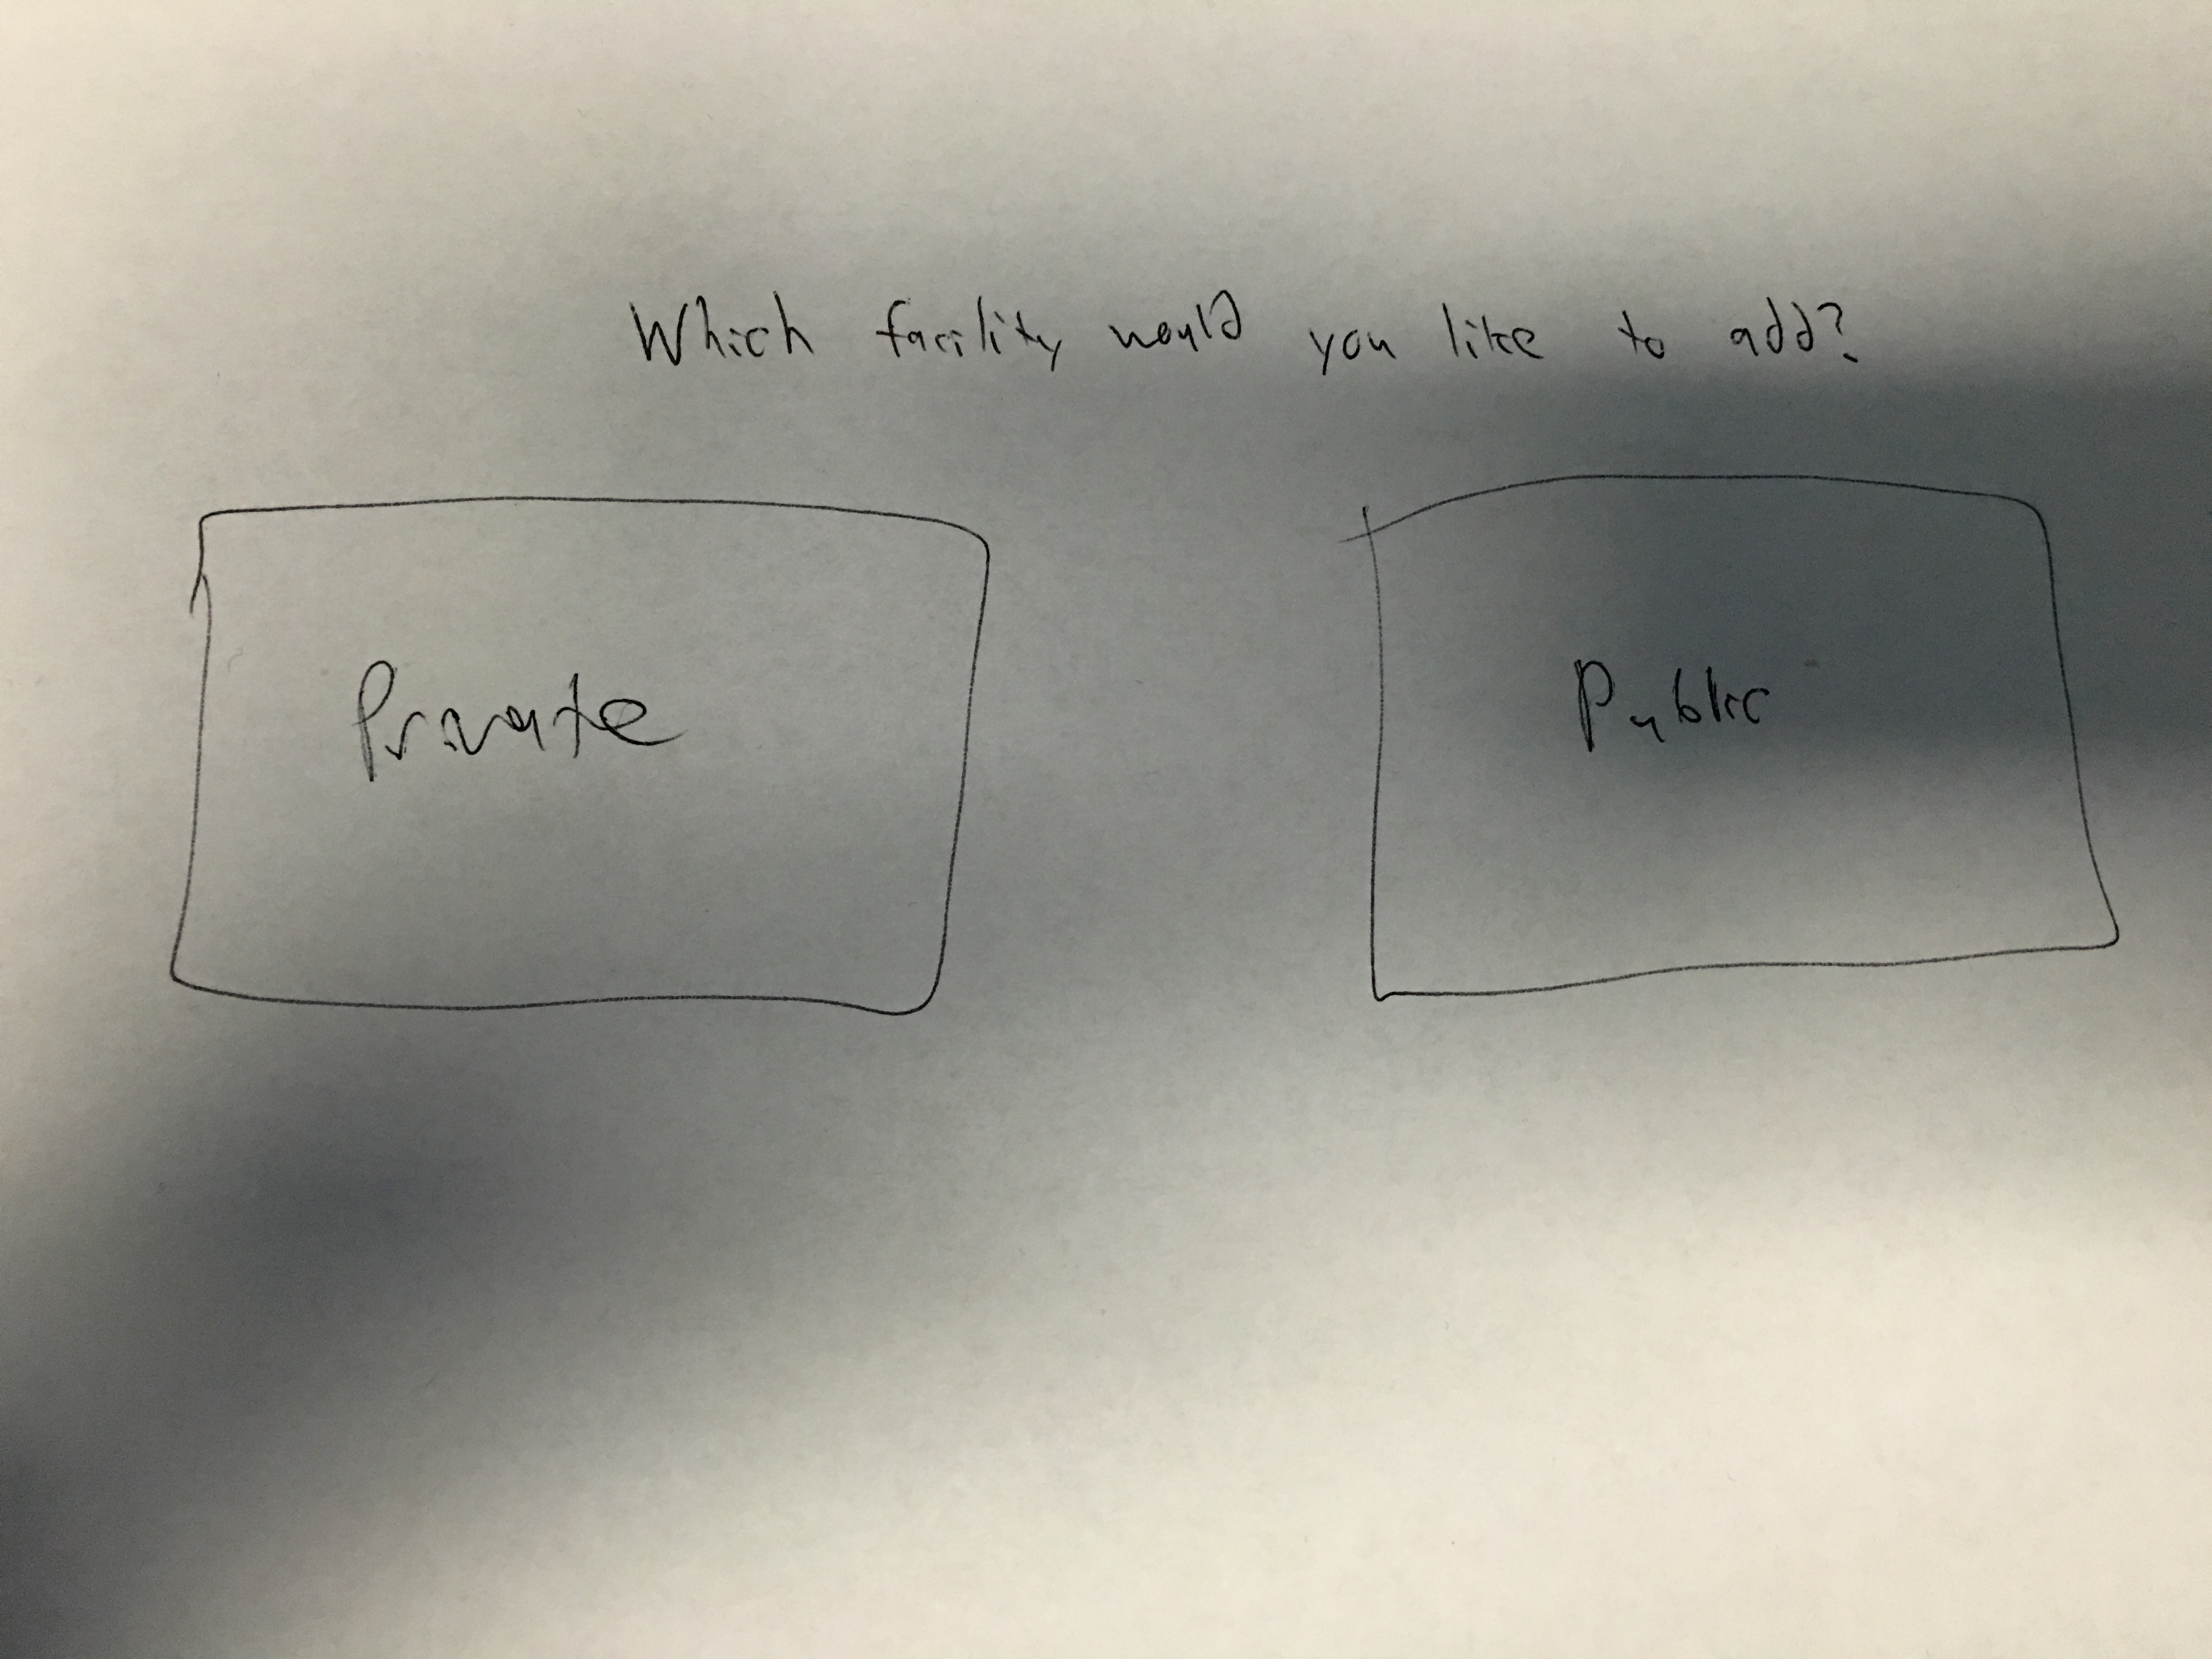 Which facility would you like to add?
Private
Public